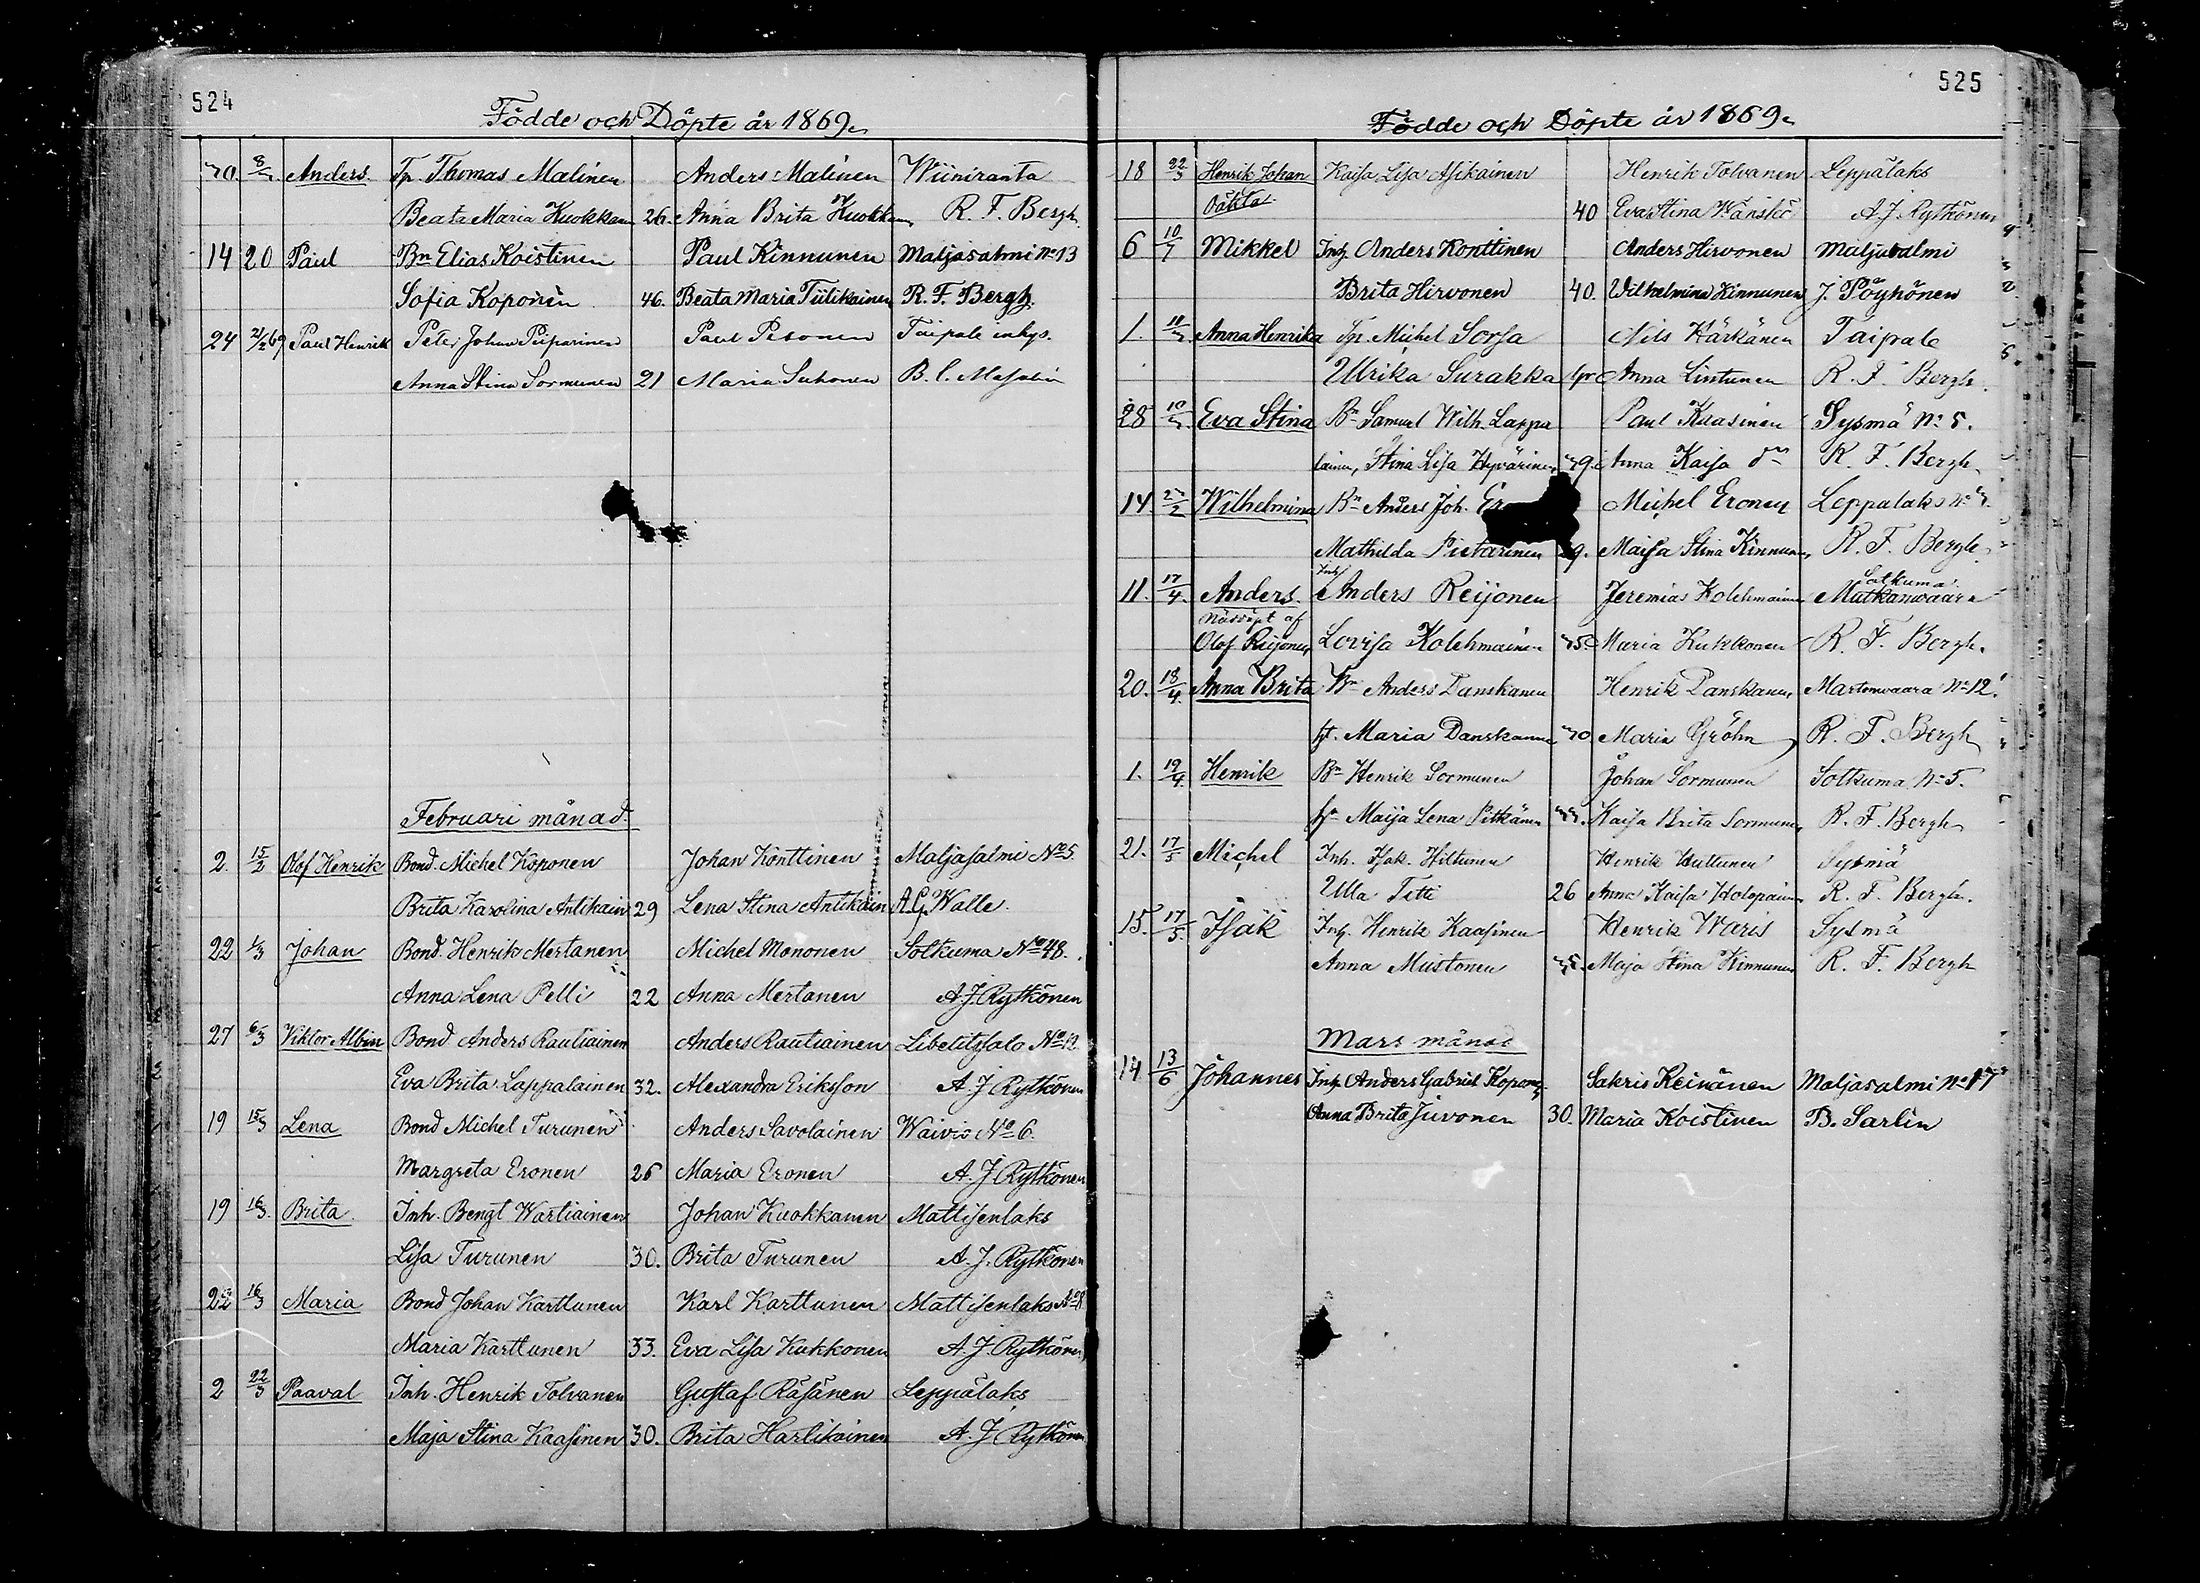 524
Födde och Döpte år 1869.
Anders. Tp. Thomas Malinen Anders Malinen Wiiniranta
Beata Maria Kuokkan 26. Anna Brita Kuokkan R. F. Bergh
14 20 Paul Bn Elias Koistinen Paul Kinnunen Maljasalmi No 13
Sofia Koponen 46. Beata Maria Tiilikainen R. F. Bergh.
24 21/2 69 Paul Henrik Peter Johan Piiparinen Paul Pesonen Taipale inhys.
Anna Stina Sormunen 21 Maria Suhonen B. C.
Februari månad
2. 15/2 Olof Henrik Bond. Michel Koponen Johan Konttinen Maljasalmi No 5.
Brita Karolina Antikain 29 Lena Stina Antikäin A. G. Walle.
22 1/3 Johan Bond. Henrik Mertanen Michel Mononen Sotkuma No 48.
Anna Lena Pelli 22 Anna Mertanen A. J. Rytkönen
27 6/3 Viktor Albin Bond Anders Rautiainen Anders Rautiainen Libelitssalo No 12
Eva Brita Lappalainen 32. Alexandra Eriksson A. J. Rytkönen
19 15/3 Lena Bond Michel Turunen Anders Savolainen Waivio No 6.
Margreta Eronen 26 Maria Eronen A. J. Rytkönen
19 16/3. Brita Inh. Bengt Wartiainen Johan Kuokkanen Mattisenlaks
Lisa Turunen 30. Brita Turunen A. J. Rytkönen
22 16/3 Maria Bond Johan Karttunen Karl Karttunen Mattisenlaks No 8
Maria Karttunen 33. Eva Lisa Kukkonen A. J. Rytkönen
2 22/3 Paaval Inh. Henrik Tolvanen Gustaf Räsänen Leppälaks
Maja Stina Kaasinen 30. Brita Harlikainen A. J. Rytkönen
525
Födde och Döpte år 1869.
18 22/3 Henrik Johan Kajsa Lisa Asikainen Henrik Tolvanen Leppälaks
Oäkta 40 Eva Stina Wänskä A. J. Rytkönen
6 10/7 Mikkel Inh. Anders Konttinen Anders Hirvonen Maljasalmi
Brita Hirvonen 40. Wilhelmina Kinnunen J. Pöyhönen
1. Anna Henrika Tp. Michel Sorsa Nils Härkänen Taipale
Ulrika Surakka Anna Lintunen R. F. Bergh.
28 Eva Stina Bn Samuel Wilh. Lappa Paul Kaasinen Sysmä No 5.
lainen, Stina Lisa Hyvärinen Anna Kajsa dn R. F. Bergh.
14. Wilhelmina Bn Anders Joh. Er Michel Eronen Leppälaks No
Mathilda Pietarinen 9. Maija Stina Kinnunen R. F. Bergh.
11. 17/4. Anders. Inh Anders Reijonen Jeremias Kolehmainen Sotkuma Mutkanwaara
Nöddöpt af
Olof Reijonen Lovisa Kolehmainen Maria Kukkonen R. F. Bergh.
20. 18/4. Anna Brita Bn Anders Danskanen Henrik Danskanen Martonwaara No 12.
ht. Maria Danskanen Maria Gröhn R. F. Bergh
1. 19/4. Henrik Bn Henrik Sormunen Johan Sormunen Sotkuma No 5.
Maija Lena Pitkänen Kajsa Brita Sormunen R. F. Bergh
21. 17/5 Michel Inh. Isak Hiltunen Henrik Hultunen Sysmä
Ulla Tetti 26 Anna Kaisa Holopainen R. F. Bergh.
15. 17/5. Isak Inh. Henrik Kaasinen Henrik Waris Sysmä
Anna Mustonen Maja Stina Kinnunen R. F. Bergh
Mars månad
14 13/6 Johannes Inh. Anders Gabriel Koponen Sakris Keinänen Maljasalmi No 17
Anna Brita Juvonen 30. Maria Koistinen B. Sarlin